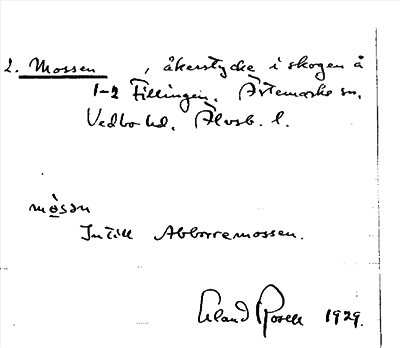 2. Mossen, åkerstycke i skogen å
1-2 Fillingen. Ärtemarks sn.
Vedbo hd. Älvsb. l.
mòsən
Intill Abborremossen.
Erland Rosell 1929.